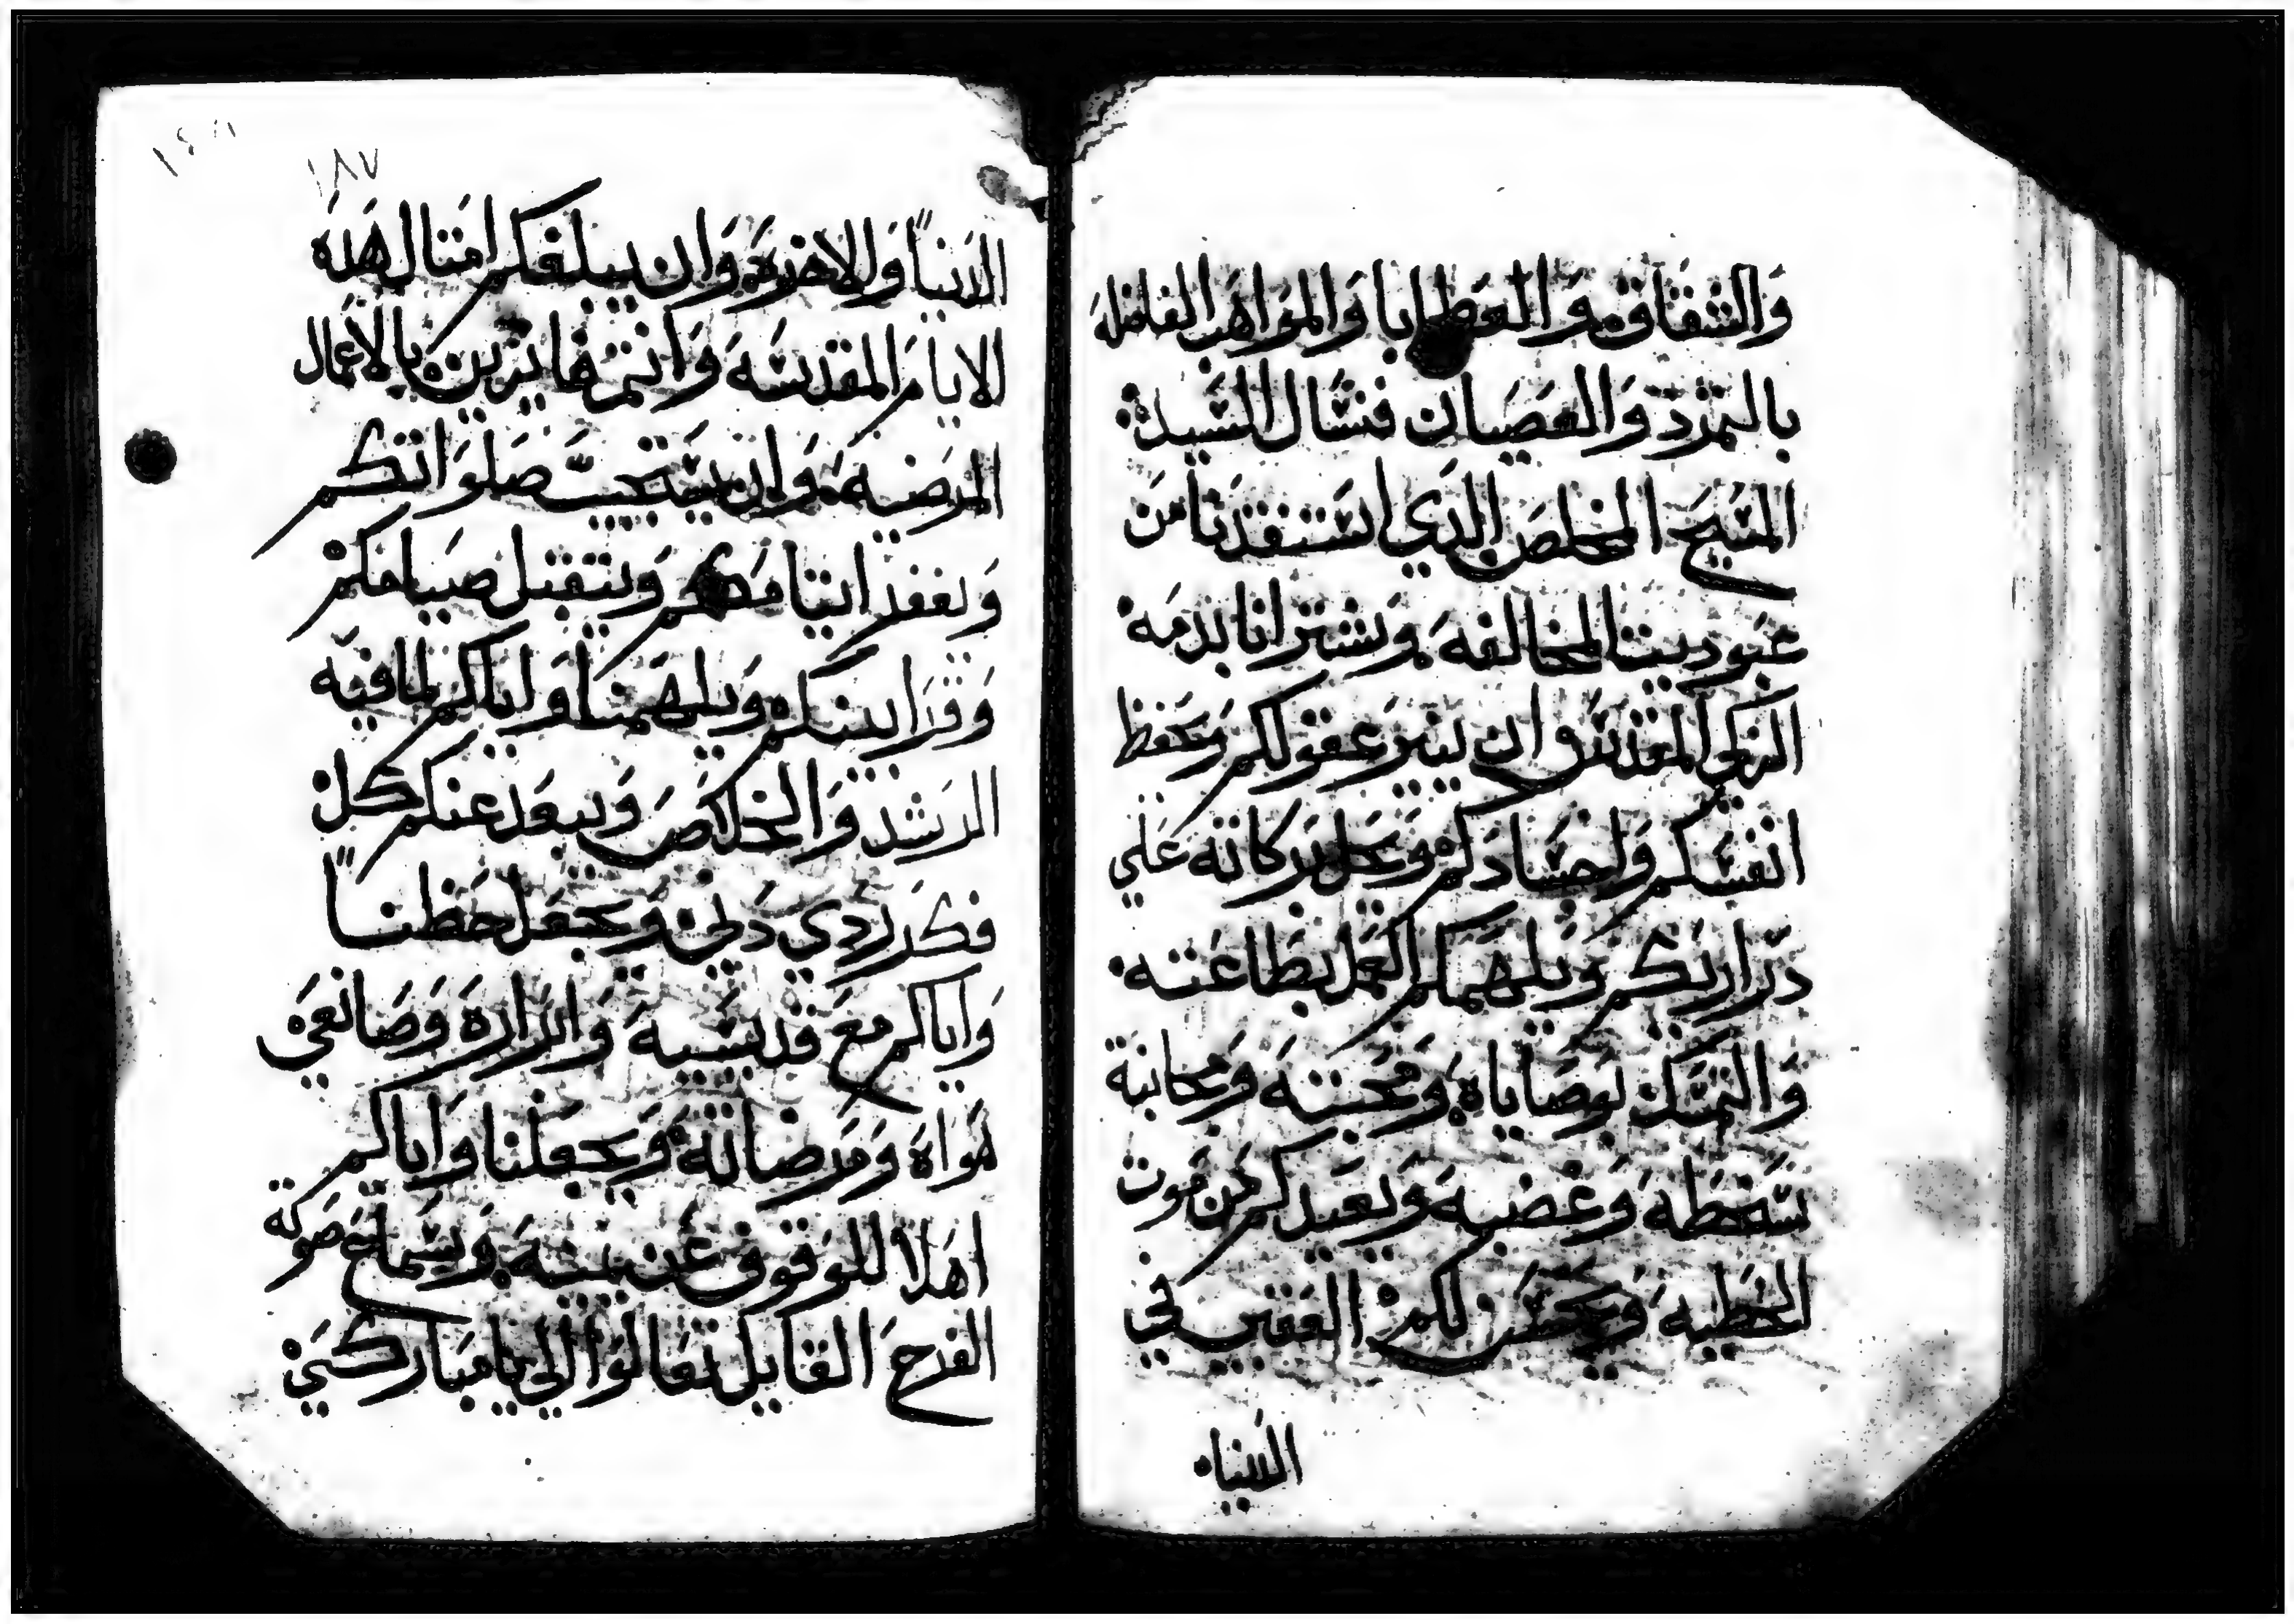 والشقاوة والعطايا والمواهب الفاضلة
بالتمرد والعصيان فنسال السيد
المسيح المخلص الدي استنقدنا من
عبوديت المخالفه ويشترانا بدمه
الزكي المقدس ان ينير عقولكم ويحفظ
انفسكم واجسادكم ويحل بركاته علي
دراريكم ويلهمكم العمل بطاعته
والتمسك بوصاياه ومحبته ومجانبة
سخطه وغضبه ويعيدكم من موت
الخطيه ويحضر لكم الغفير في
الدنيا
١٨٧
الدنيا والاخره وان يبلغكم امتال هده
الايام المقدسه وانتم فايزين بالاعمال
المرضيه وان يستجيب صلواتكم
ويغفر اتامكم ويتقبل صيامكم
وقرابينكم ويلهمنا واياكم لما فيه
الرشد والخلاص ويبعد عنكم كل
فكر ردي دني ويجعل حظنا
واياكم مع قديسيه وابراره وصانعي
هواه ومرضاته ويجعلنا واياكم
اهلا للوقوف عن يمينه وسماع صوته
الفرح القايل تعالوا الي يا مباركي